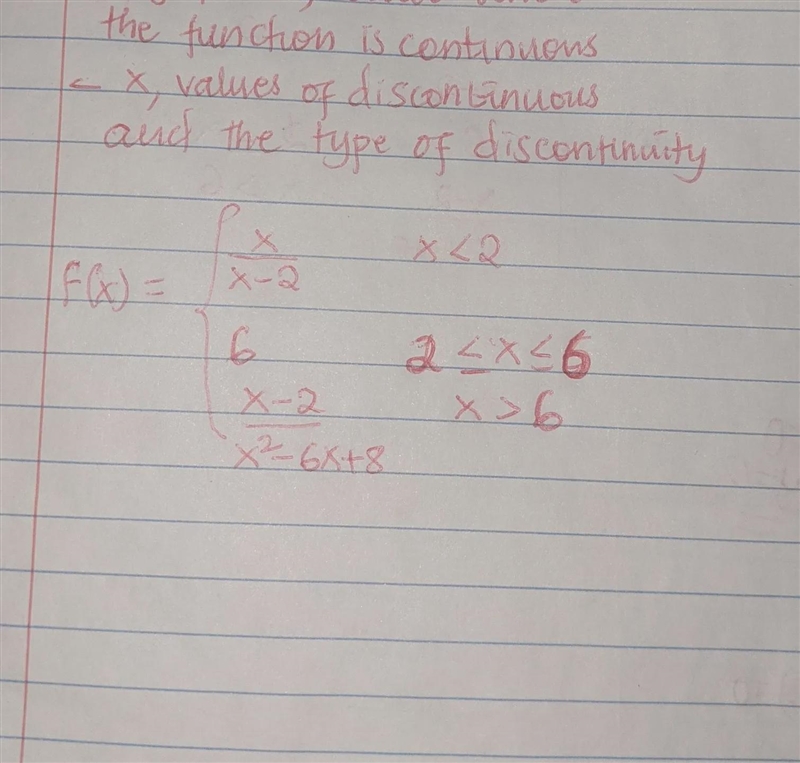 the function is continuous
- x, values of discontinuous
and the type of discontinuity
f(x) = { x/(x-2) x<2
6 2 ≤ x ≤ 6
x-2 / x²-6x+8 x>6